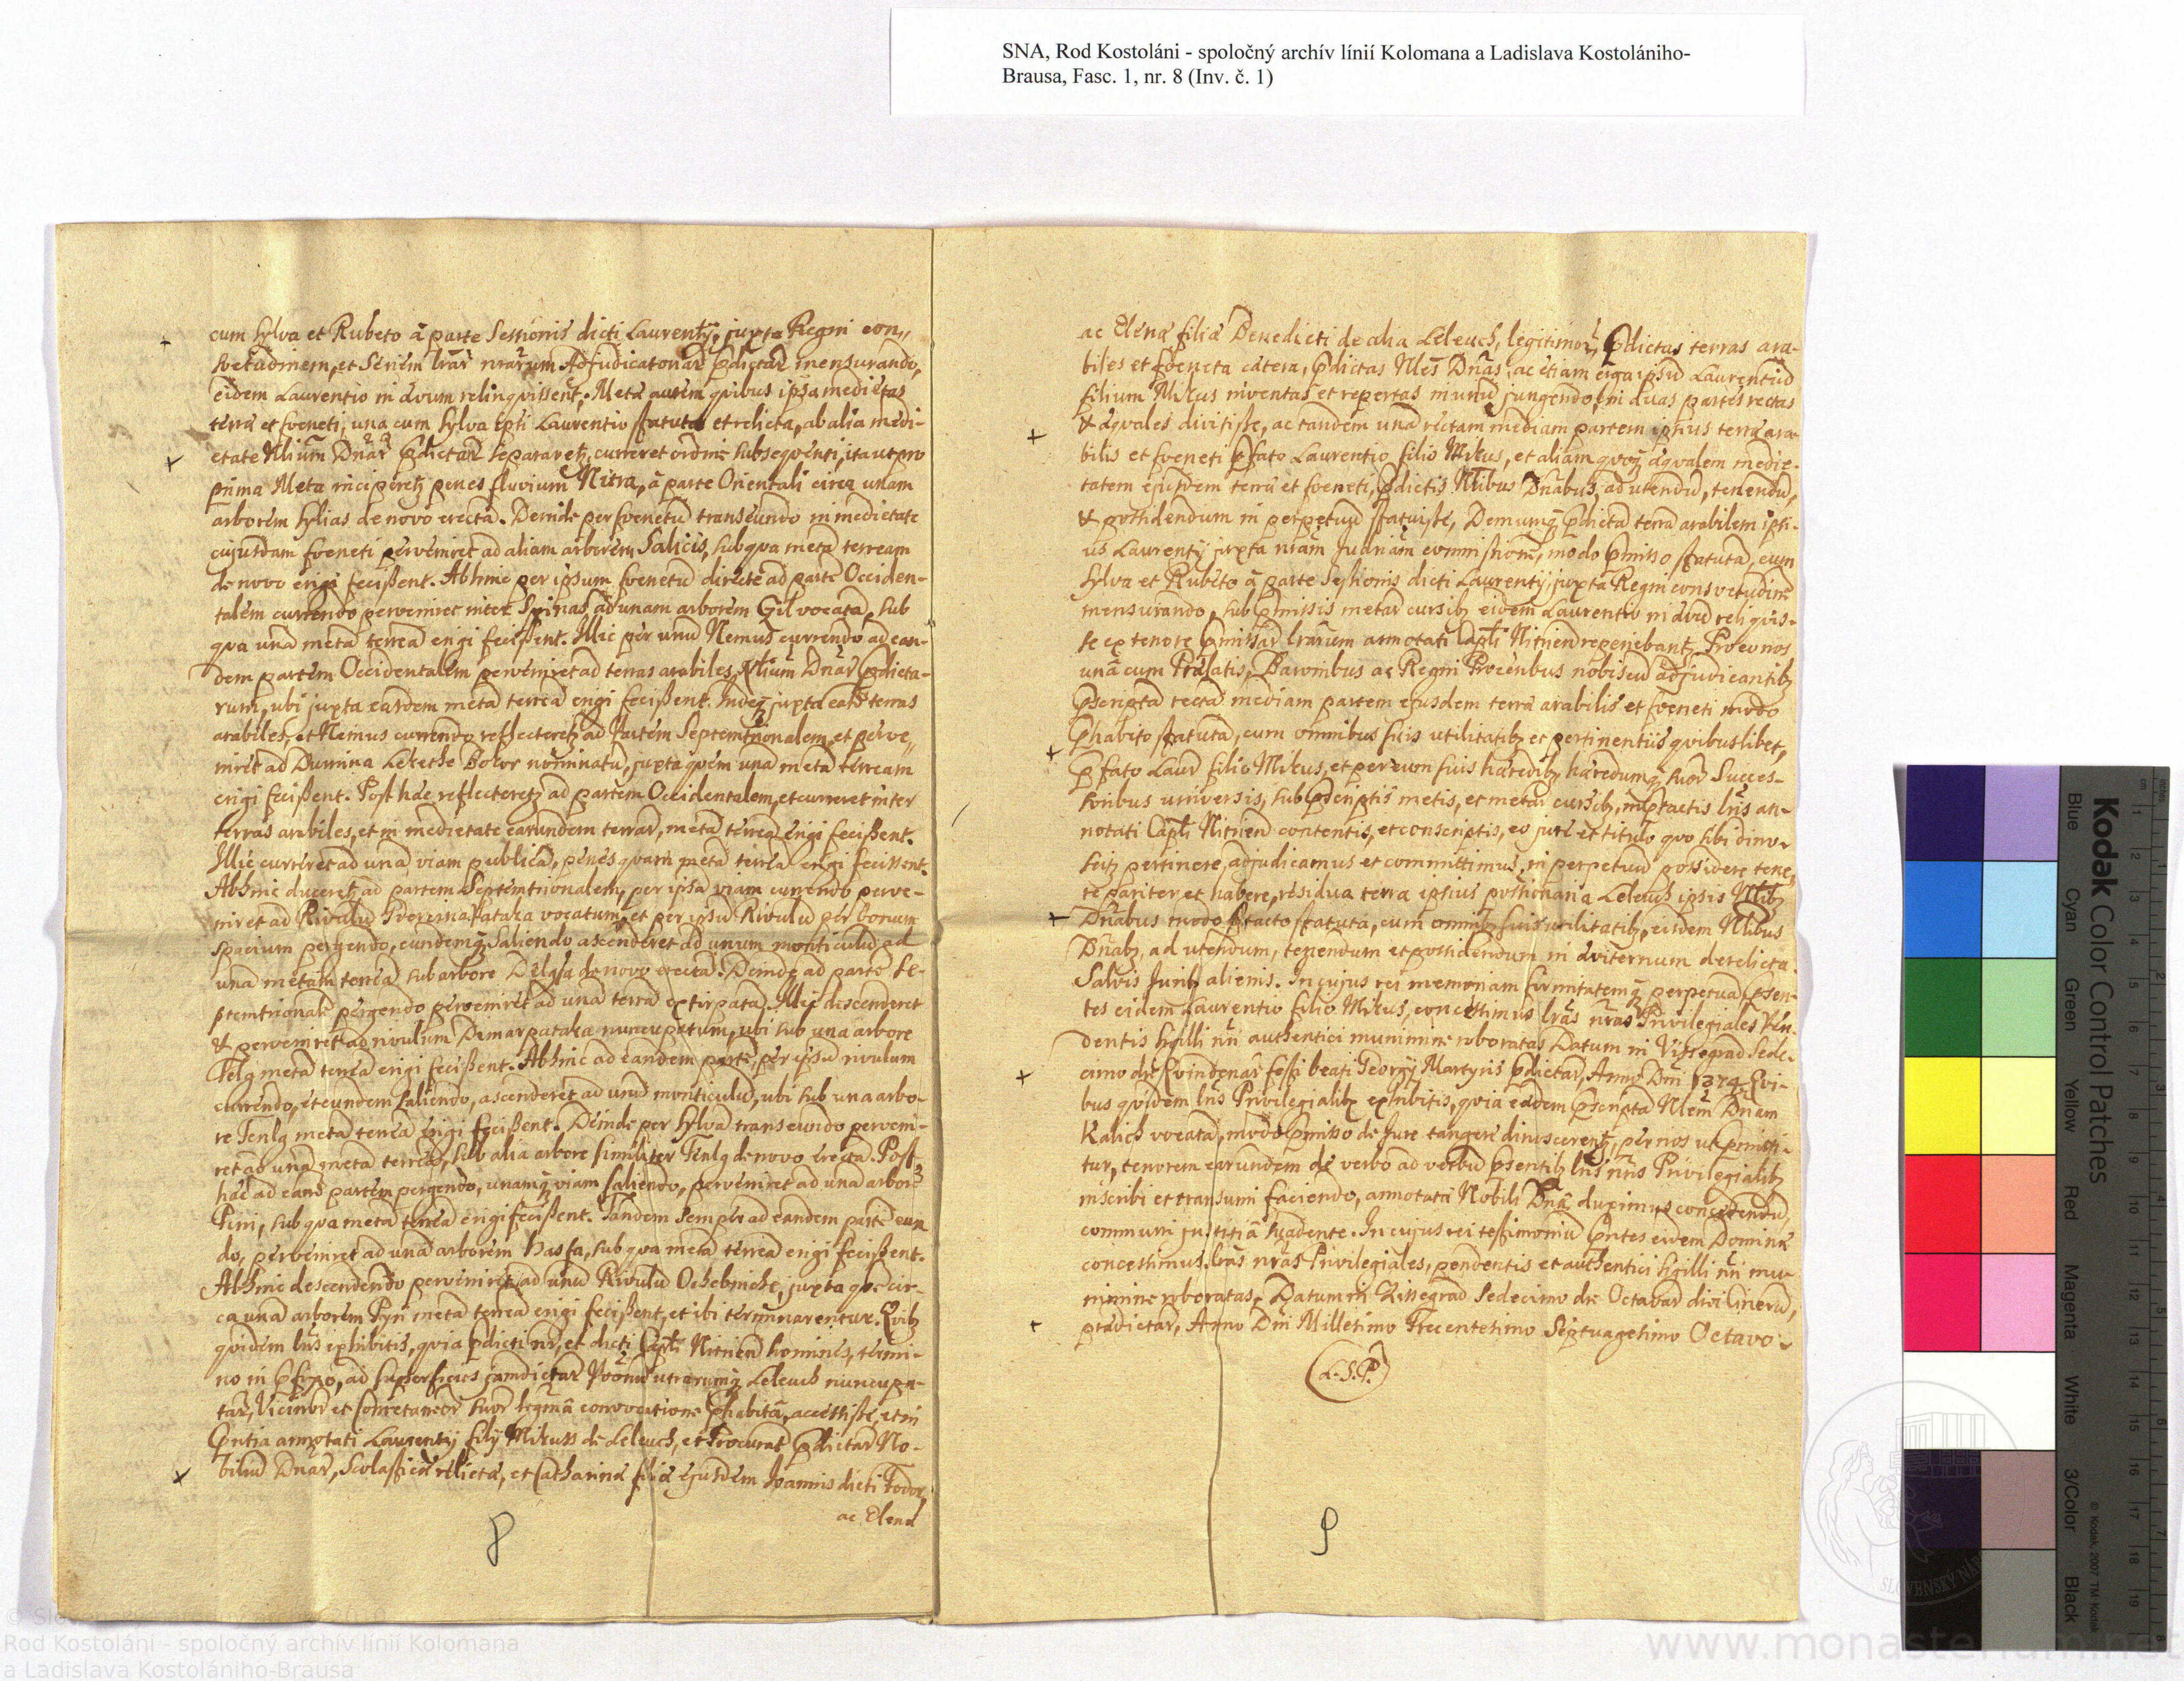 SNA, Rod Kostoláni - spoločný archív línií Kolomana a Ladislava Kostolániho-
Brausa, Fasc. 1, nr. 8 (Inv. č. 1)
cum sylva et Rubeto à parte Sessionis dicti Laurentij, juxta Regni con„
svetudinem, et Seriem lrār nrārum Adjudicatoriar pdictar mensurando,
eidem Laurentio in ævum relinqvissent. Metæ autem qvibus ipsa medietas
terræ et foeneti, una cum sylva ipsi Laurentio statuta et relicta, ab alia medi-
etate Nlium Dnār pdictar separaretz, curreret ordine subseqventi, ita ut pro
prima Meta inciperetz penes fluvium Nitra, à parte Orientali circa unam
arborem hylias de novo erectā. Deinde per foenetū transeundo in medietate
cujusdam foeneti perveniret ad aliam arborem Salicis, sub qva metā terream
de novo erigi fecissent. Abhinc per ipsum foenetū directè ad partē Occiden-
talem currendo perveniret inter Spinas ad unam arborem Gil vocatā, sub
qva unā metā terreā erigi fecissent. Illic per unū Nemus currendo ad ean-
dem partem Occidentalem perveniret ad terras arabiles Nlium Dnār pdicta-
rum, ubi juxta easdem metā terreā erigi fecissent. Indeq juxta easd terras
arabiles, et Nemus currendo reflecteretz ad Partem Septemtrionalem, et perve„
niret ad Dumina Leketche Bokor nominatū, juxta qvem unā metā terream
erigi fecissent. Post hæc reflecteretz ad partem Occidentalem, et curreret inter
terras arabiles, et in medietate earundem terrar, metā terreā erigi fecissent.
Illic curreret ad unā viam publicā, penes qvam metā terreā erigi fecissent.
Abhinc duceretz ad partem Septemtrionalem, per ipsā viam currendo perve-
niret ad Rivulū pataka vocatum, et per ipsū Rivulū per bonum
spacium pergendo, eundemq Saliendo ascenderet ad unum monticulū ad
unā metam terreā sub arbore de novo erectā. Deinde ad partē Se-
ptemtrionalē pergendo perveniret ad unā terrā extirpatā. Illic descenderet
& perveniret ad rivulum Demarpataka nuncupatum, ubi sub una arbore
metā terreā erigi fecissent. Abhinc ad eandem partē, per ipsū rivulum
currendo, et eundem Saliendo, ascenderet ad unū monticulū, ubi sub una arbo-
re metā terreā erigi fecissent. Deinde per sylvā transeundo perveni-
ret ad unā metā terreā, sub alia arbore similiter de novo erectā. Post
hæc ad eand partem pergendo, unamq viam saliendo, perveniret ad unā arborē
Pini, sub qva metā terreā erigi fecissent. Tandem semper ad eandem partē eun
do, perveniret ad unā arborem hasfa, sub qva metā terreā erigi fecissent.
Abhinc descendendo perveniret ad unū Rivulū Ochebniche, juxta qvē cir-
ca unā arborem Pyri metā terreā erigi fecissent, et ibi terminarentur. Qvibz
qvidem lris exhibitis, qvia pdicti nri, et dicti Capli Nitrien homines, termi-
no in pfixo, ad superficies jamdictar Poōnū utrarumq Leleuch nuncupa-
tar, Vicinor et Cometaneor suor legitimā convocatione phabitā, accessisse, et in
Pntia annotati Laurentij filij Mikuss de Leleuch, et Procurat pdictar No-
biliū Dnār, Scolasticæ relictæ, et Catharinæ filiæ ejusdem Joannis dicti Fodor,
ac Elenæ
8
ac Elenæ filiæ Benedicti de alia Leleuch, legitimor, pdictas terras ara-
biles et foeneta cætera, pdictas Nles Dnās, ac etiam erga ipsū Laurentiū
filium Mikus inventas et repertas in unū jungendo, in duas partes rectas
& æqvales divisisse, ac tandem unā rectam mediam partem ipsius terræ ara-
bilis et foeneti pfato Laurentio filio Mikus, et aliam qvoq æqvalem medie-
tatem ejusdem terræ et foeneti, pdictis Nlibus Dnābus, ad utendū, tenendū,
& possidendum in perpetuū statuisse, Demumq pdictā terrā arabilem ipsi-
us Laurentij juxta nrām Judriām commissionē, modo pmisso statutā, cum
sylva et Rubeto à parte Sessionis dicti Laurentij, juxta Regni consvetudinē
mensurando, sub pmissis metar cursibz eidem Laurentio in ævū reliqvis-
se ex tenore pmissar lrārum annotati Capli Nitrien reperiebantz. Pro eo nos
unā cum Prælatis, Baronibus ac Regni Proceribus nobiscū adjudicantibz
pscriptā rectā mediam partem ejusdem terræ arabilis et foeneti modo
phabito statutā, cum omnibus suis utilitatibz et pertinentiis qvibuslibet,
pfato Laur filio Mikus, et per eum suis hæredibz hæredumq suor Succes-
soribus universis, sub pscriptis metis, et metar cursibz, in ptactis lris an-
notati Capli Nitrien contentis, et conscriptis, eo jure et titulo quo sibi dinos-
citz pertinere, adjudicamus et committimus, in perpetuū possidere tene„
re pariter et habere, residua terra ipsius possionariā Leleuch ipsis Nlibz
Dnābus modo ptacto statutā, cum omnibz suis utilitatibz, eisdem Nlibus
Dnābz, ad utendum, tenendum et possidendum in æviternum derelicta.
Salvis Juribz alienis. In cujus rei memoriam firmitatemq perpetuā psen-
tes eidem Laurentio filio Mikus, concessimus lrās nrās Privilegiales Pen-
dentis sigilli nri authentici munimine roboratas Datum in Vissegrad Sede-
cimo die Qvindenār festi beati Georgij Martyris pdictar, Anno Dni 1374. Qvi-
bus qvidem lris Privilegialibz exhibitis, qvia eædem pscriptā Nlem Dnām
Kalich vocatā, modo pmisso de Jure tangere dinoscerentz, per nos ut pmitti-
tur, tenorem earundem de verbo ad verbū psentibz lris nris Privilegialibz
inscribi et transumi faciendo, annotatæ Nobili Dnæ duximus concedendū,
communi justitiā svadente. In cujus rei testimoniū pntes eidem Dominæ
concessimus lrās nrās Privilegiales, pendentis et authentici sigilli nri mu-
nimine roboratas. Datum in Vissegrad Sedecimo die Octavar diei Cinerū,
prædictar, Anno Dni Millesimo Trecentesimo Septuagesimo Octavo.
(L. S. P.)
9
Kodak Color Control Patches
Blue Cyan Green Yellow Red Magenta White 3/Color Black
© Kodak, 2007 TM: Kodak
Rod Kostoláni - spoločný archív línií Kolomana
a Ladislava Kostolániho-Brausa
www.monasterium.net